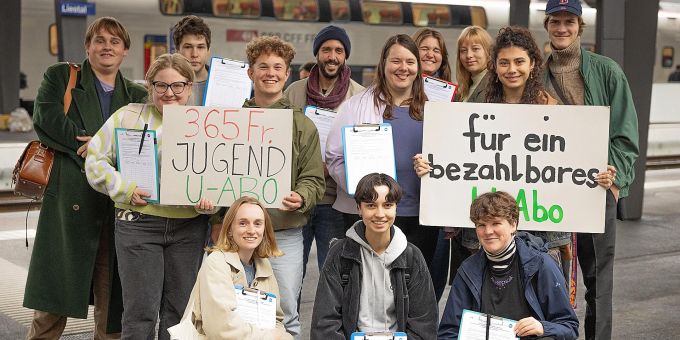 Liestal
SBB CFF FFS
365 Fr.
JUGEND
U-ABO
für ein
bezahlbares
U-Abo